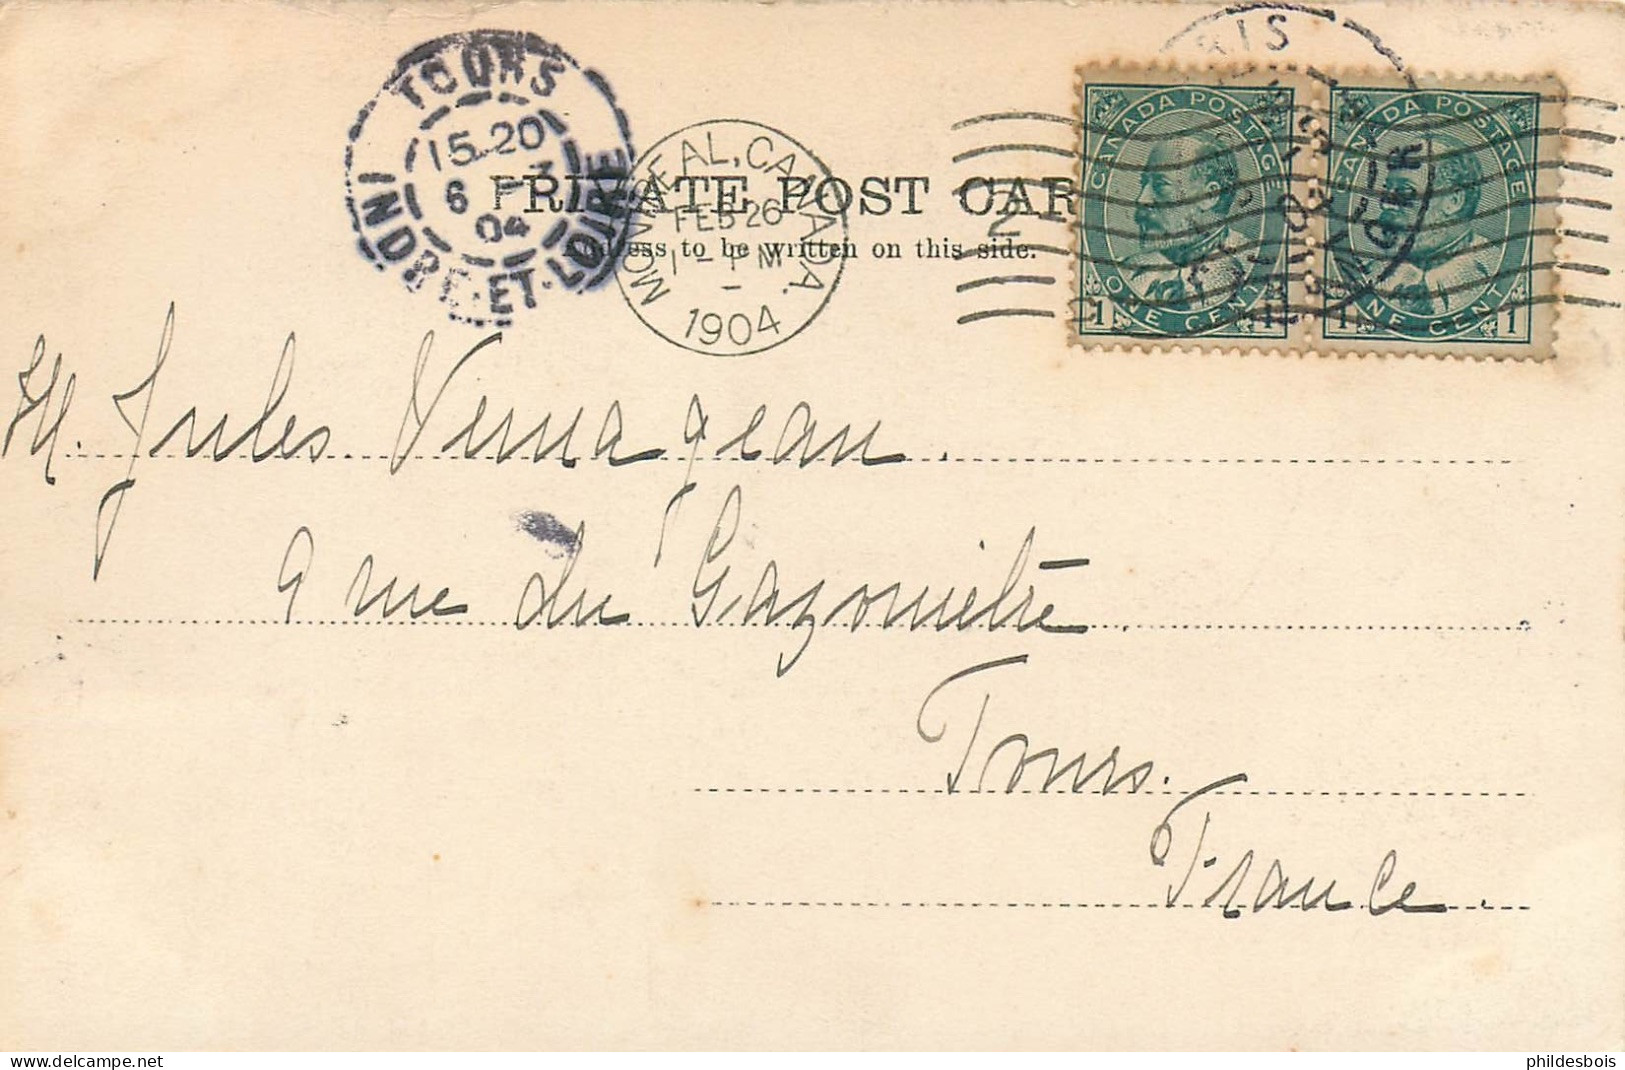 TOURS
15.20
6 -3
04
INDRE-ET-LOIRE
MONTREAL, CANADA.
FEB 26
1904
PRIVATE POST CAR
to be written on this side.
2
CANADA POSTAGE
1 ONE CENT 1
CANADA POSTAGE
1 ONE CENT 1
M. Jules Vernageau.
9 rue du Gazomètre.
Tours.
France.
phildesbois